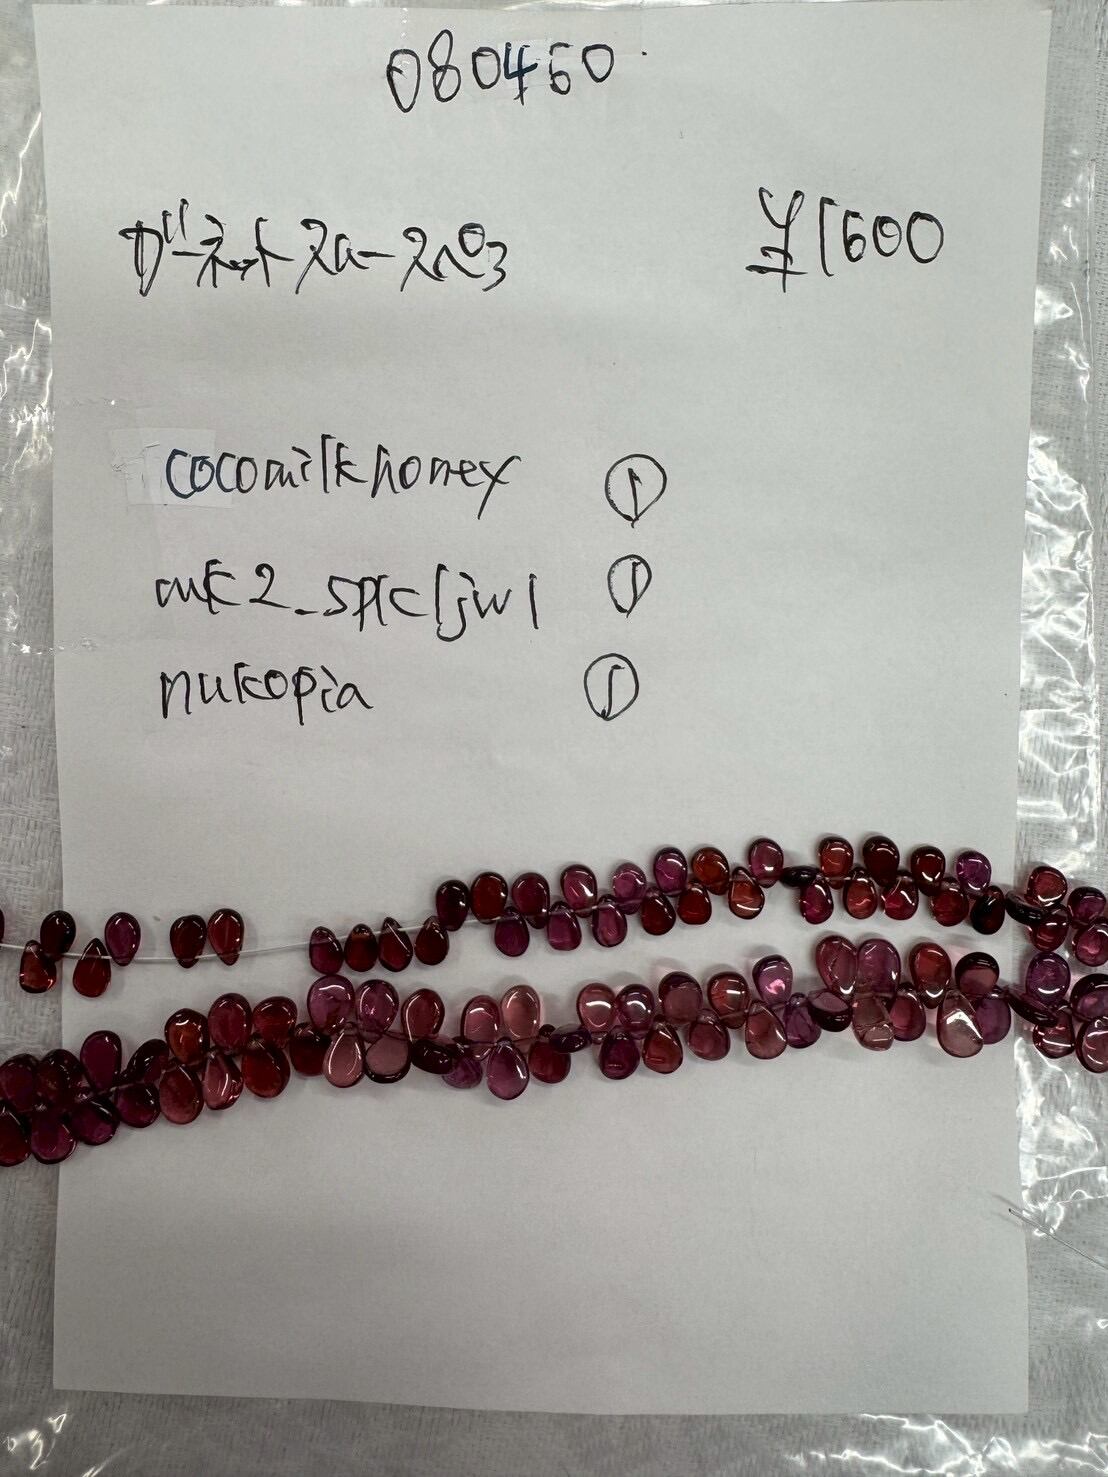 080460
ガーネットスムースペア ¥1600
cocomilkhoney ①
mk2_spcljwl ①
nukopia ①